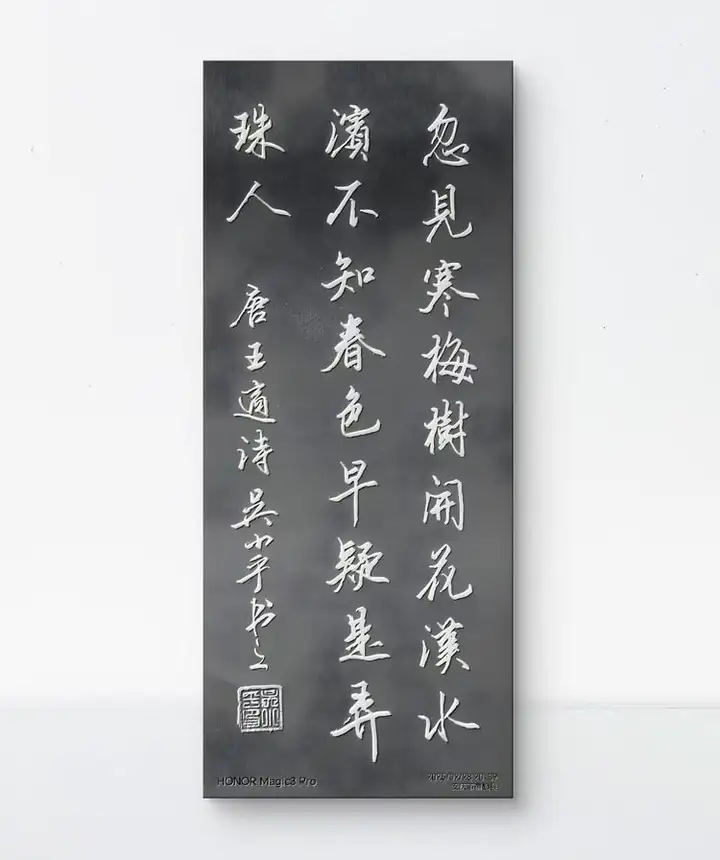 忽見寒梅樹開花漢水
濱不知春色早疑是弄
珠人
唐王適诗吴小平书之
HONOR Magic3 Pro